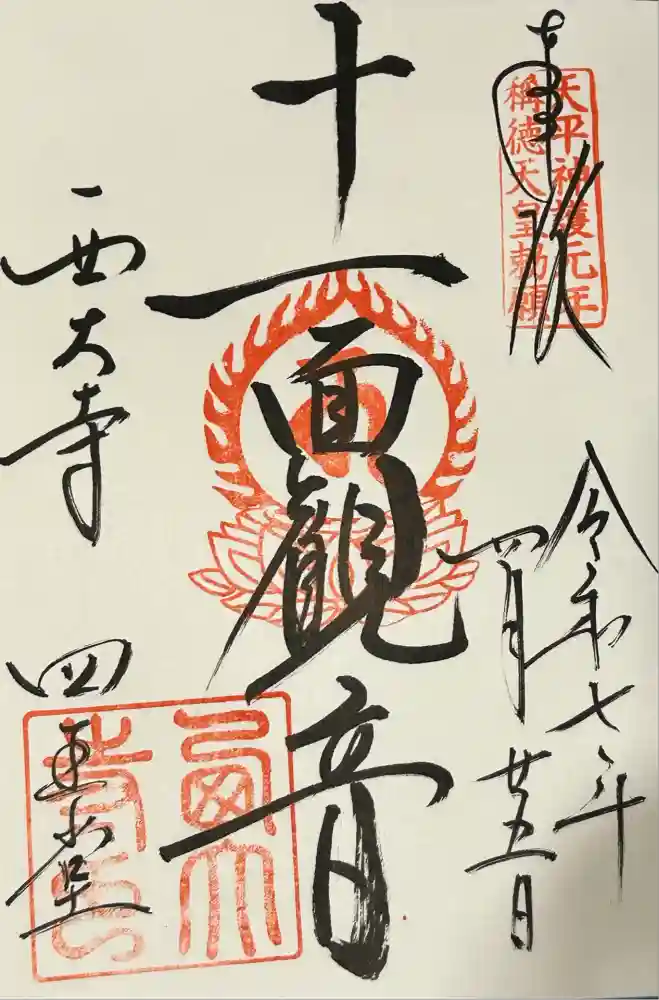 奉拝
天平神護元年
稱徳天皇勅願
令和七年
四月廿五日
十一面観音
西大寺
四王堂